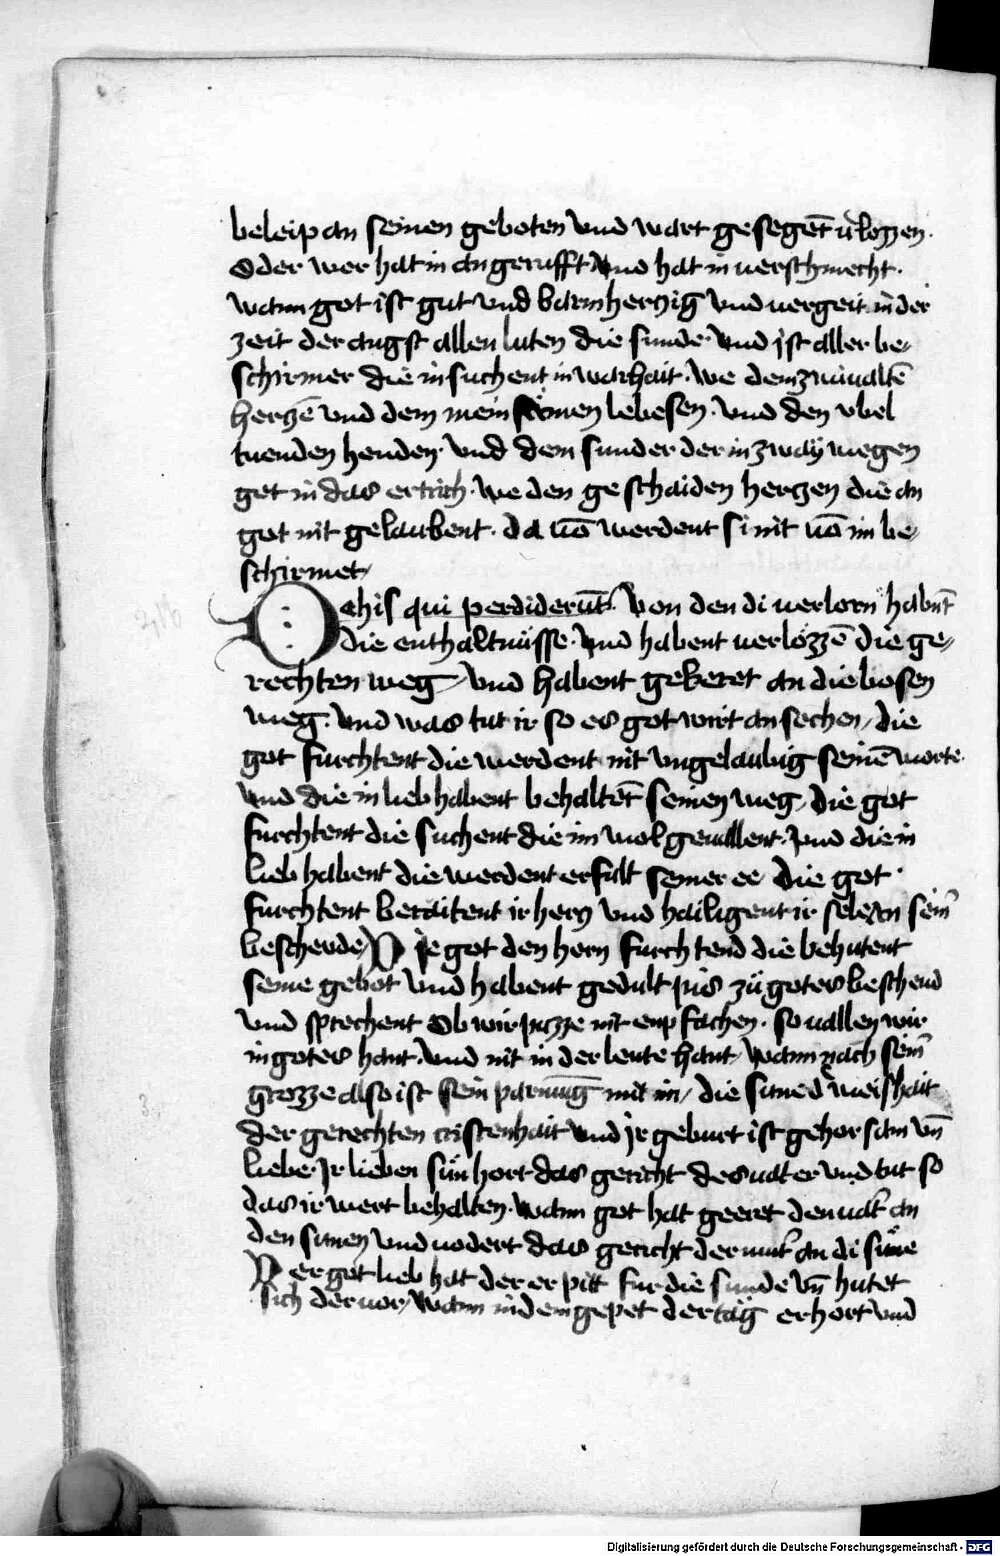 beleip an seinen geboten vnd wart gesegēt v̄lozzen.
Oder wer hat in angerufft vnd hat in uerschmecht.
wann got ist gut vnd barmherczig vnd uergeit in der
zeit der angst allen luten die sunde. vnd jst aller be⸗
schirmer die in suchent in warhait. we dem zwiualtē
herczē vnd dem mein lebesen. vnd den vbel
tuenden henden. vnd dem sunder der in zway wegen
get in das ertrich. we den geschaiden herczen die an
got nit gelaubent. da uō werdent si nit uō im be⸗
schirmet/
Ve his qui perdiderūt. Von den di uerlorn habnt
die enthaltnüsse. vnd habent uerlözzē die ge⸗
rechten weg/ vnd habent gekeret an die bosen
weg. vnd was tut ir so es got wirt ansechen/ die
got furchtent die werdent nit vngelaubig seinē worte.
vnd die in lieb habent behaltēt seinen weg/ die got
furchtent die suchent die im wol geuallent. vnd die in
lieb habent die werdent erfult seiner ee/ die got
furchtent beraitent ir hercz vnd hailigent ir selen seim
bescheude/ Die got den hern furchtend die behutent
seine gebot vnd habent gedult pis zü gotes beschend
vnd sprechent Ob wir puzze nit enpfachen. so uallen wir
in gotes hant vnd nit in der leute hant/ wann nach seim
grozze also ist sein parmūg mit im/ die süned weishait
der gerechten cristenhait vnd jr geburt ist gehorsam vn̄
liebe. Ir lieben sün hort das gericht des uater vnd tut so
das ir wert behalten. wann got hat geeret den uat an
den sunen vnd uodert das gericht der mut an di süne
Der got lieb hat der er pitt fur die sunde vn̄ hutet
sich deruor/ wann in dem gepet der tag erhort vnd
Digitalisierung gefördert durch die Deutsche Forschungsgemeinschaft - DFG